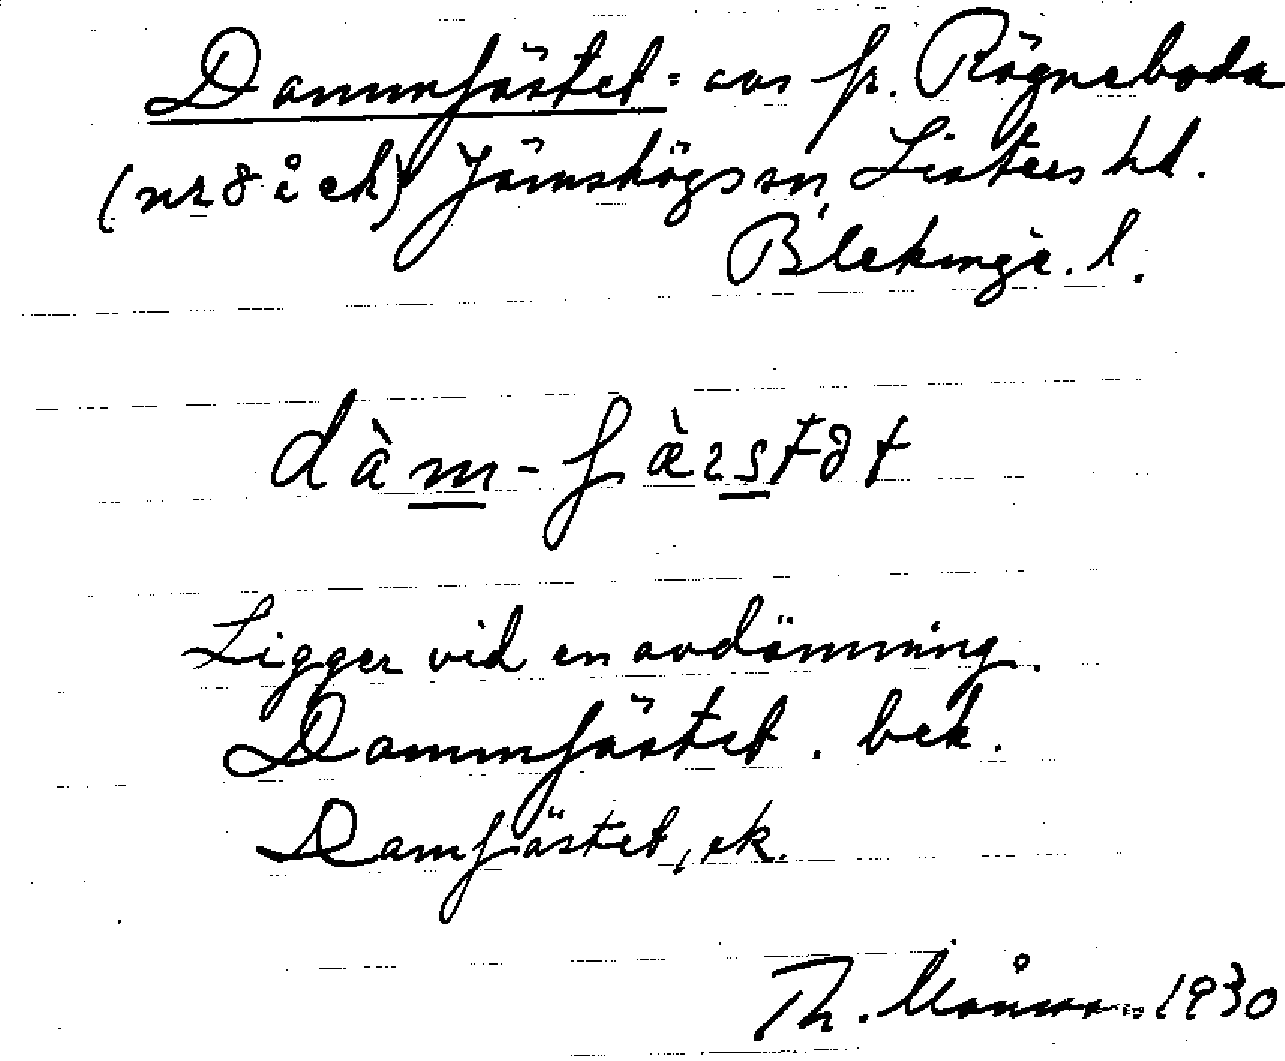 Dammfästet: avs fr. Rögneboda
(nr 8 i ek) Jämshögs sn, Listers hd.
Blekinge. l.
dàm-fæ̀rstət
Ligger vid en avdämning.
Dammfästet. bek.
Damfästet, ek.
Th. 1930